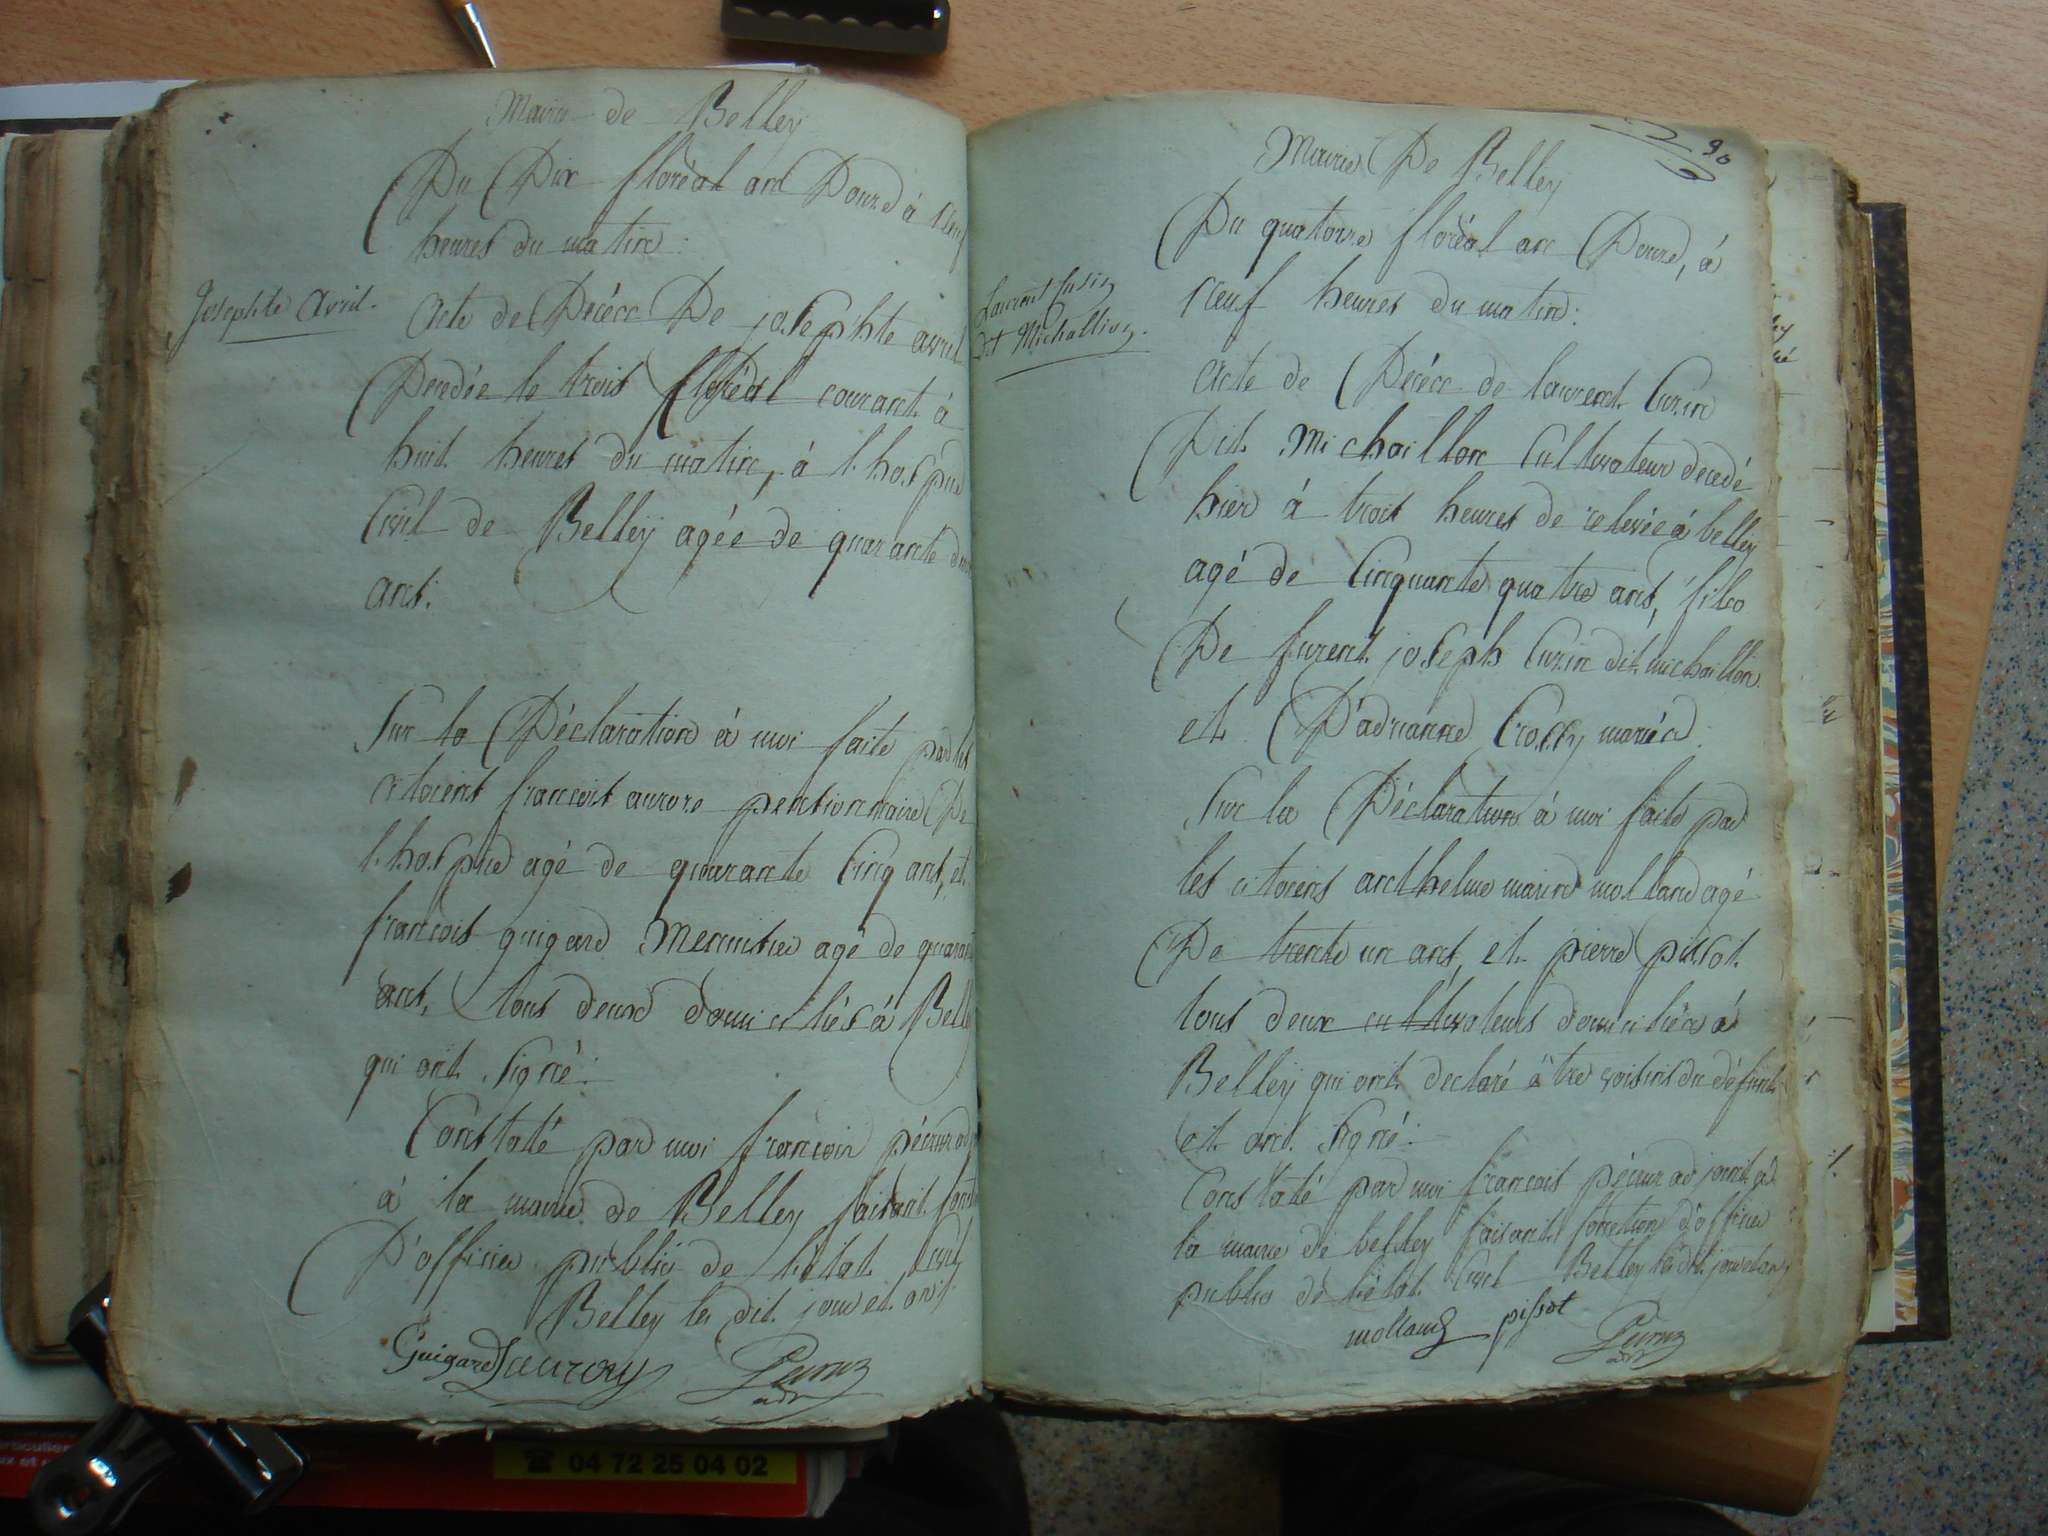 Mairie de Belley
Du Dix floréal an Douze à neuf
heures du matin:
Josephte Avril.
acte de Décèc De josephte avril
Decedée le trois floréal courant à
huit heures du matin, à l'hospice
Civil de Belley agée de quarante deux
ans.
Sur la Déclaration à moi faite par les
citoiens francois aurore pensionnaire De
l'hospice agé de quarante Cinq ans, et
francois guigard Menuisier agé de quarante
ans, tous deux domiciliés à Belley
qui ont signé:
Constaté par moi francois pécruz adj
à la mairie de Belley faisant fonct
D'officier public de l'état Civil
Belley les dit jour et an
Guigard aurory
adt
90
Mairie De Belley
Du quatorze floréal an Douze, à
neuf heures du matin:
Laurent Cusin
dit Michallion.
acte de Décèc de laurent Cuzin
Dit Michaillon Cultivateur decedé
hier à trois heures de relevée à belley
agé de Cinquante quatre ans, fils
De furent joseph Cuzin dit michaillon
et D'adrianne Crossy mariéc
Sur la Déclaration à moi faite par
les citoiens anthelme marin molland agé
De trente un ans, et pierre pissot
tous deux cultivateurs domiciliéc à
Belley qui ont declaré être voisins du défunt
et ont signé:
Constaté par moi francois pécruz adjoint à
la mairie de belley faisant fonction d'officier
public de l'état Civil Belley les dit jour et an
molland pissot
adt
04 72 25 04 02